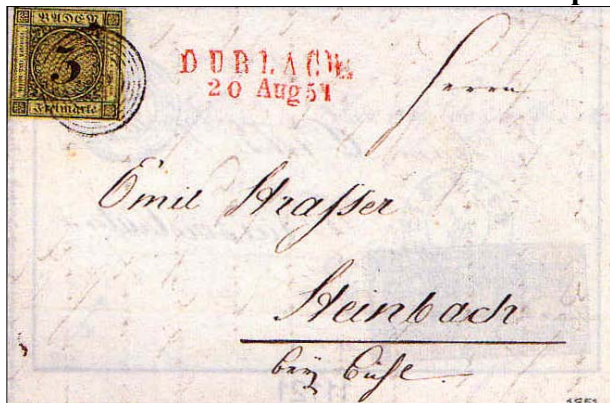 BADEN
3
Freimarke
DURLACH
20 Aug 51
Herrn
Emil Strasser
Steinbach
bey Bühl.
1851